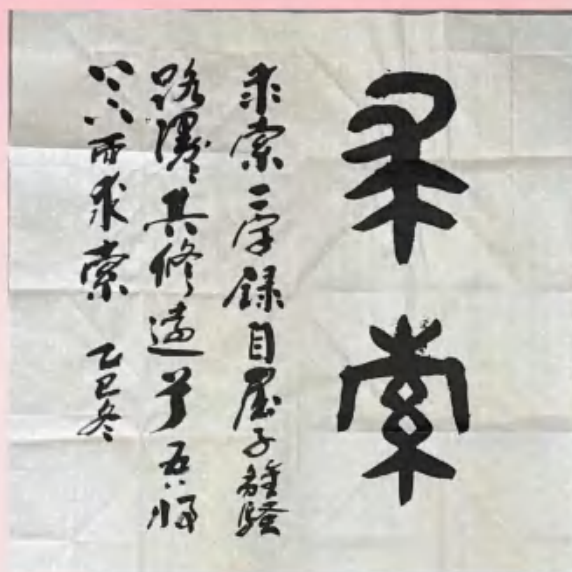 求索
求索二字録自屈子離騷
路漫々其修遠兮吾将
上下而求索 乙巳冬